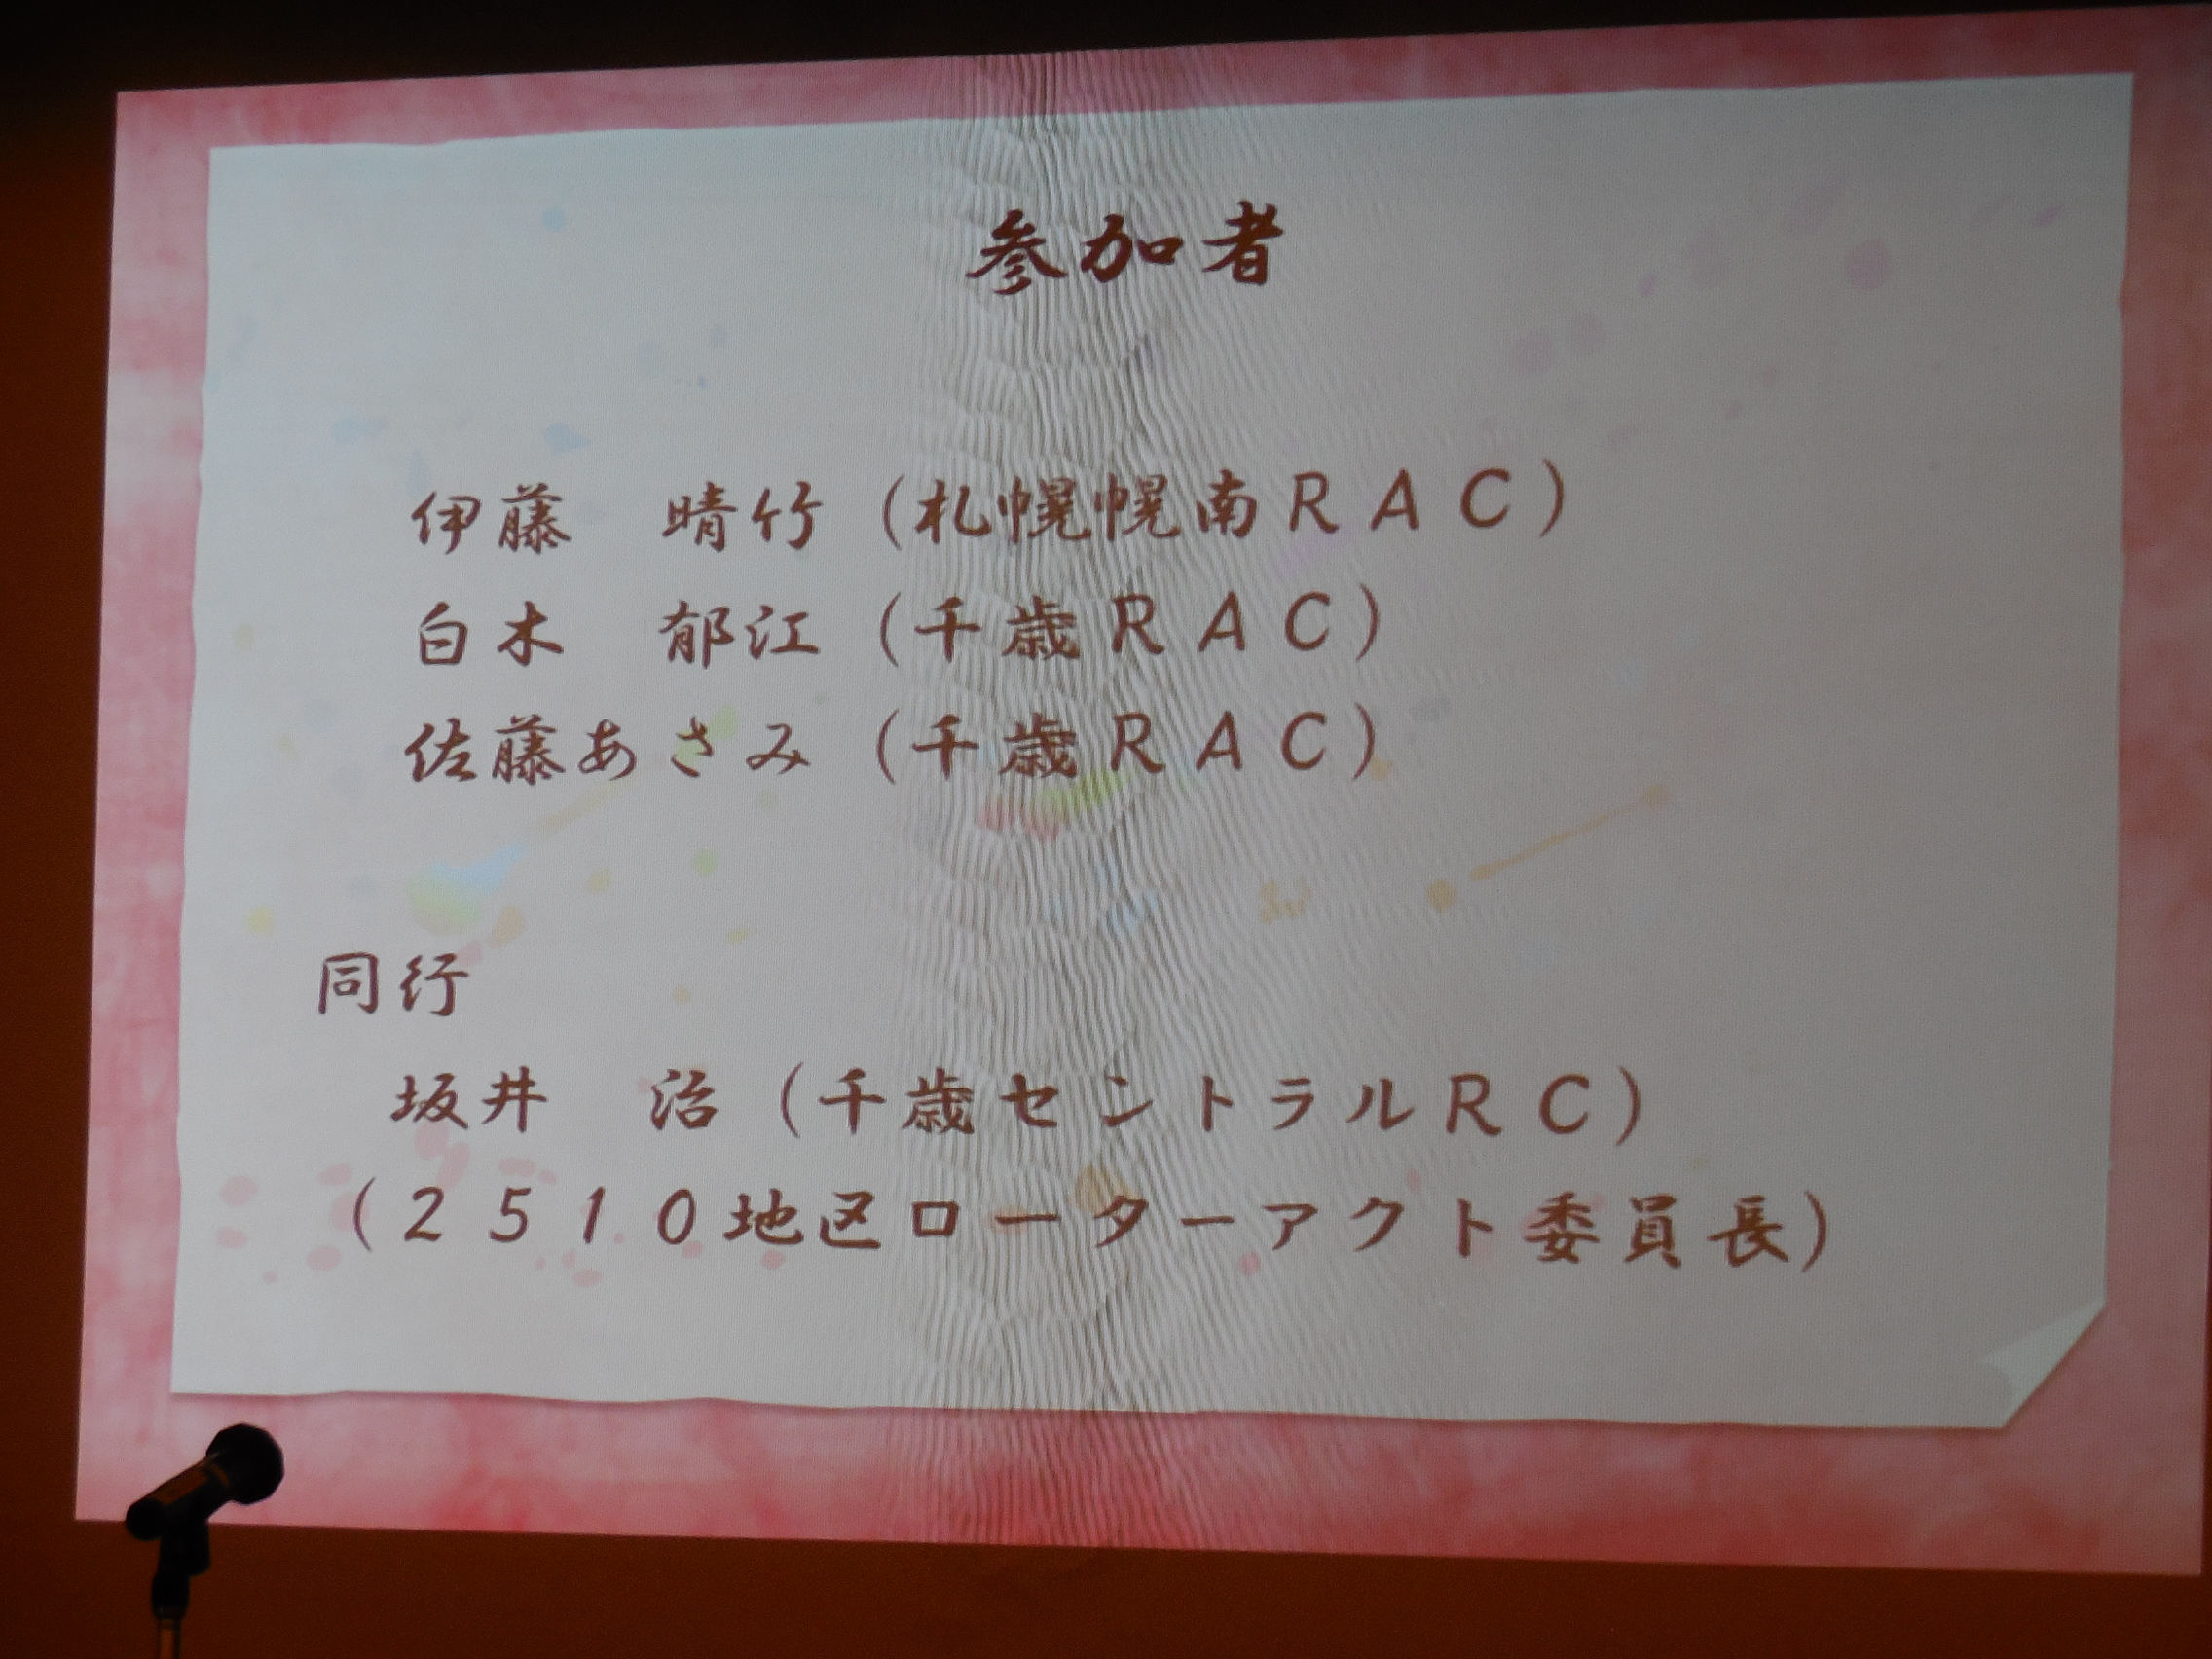 参加者
伊藤　晴竹（札幌幌南ＲＡＣ）
白木　郁江（千歳ＲＡＣ）
佐藤あさみ（千歳ＲＡＣ）
同行
坂井　治（千歳セントラルＲＣ）
（２５１０地区ローターアクト委員長）